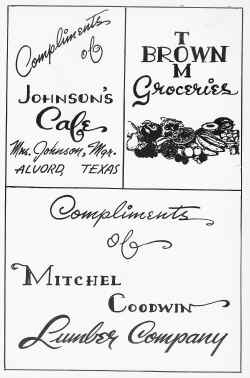 Compliments
of
JOHNSON'S
Cafe
Mrs. Johnson, Mgr.
ALVORD, TEXAS
TOM
BROWN
Groceries
Compliments
of
MITCHEL
GOODWIN
Lumber Company